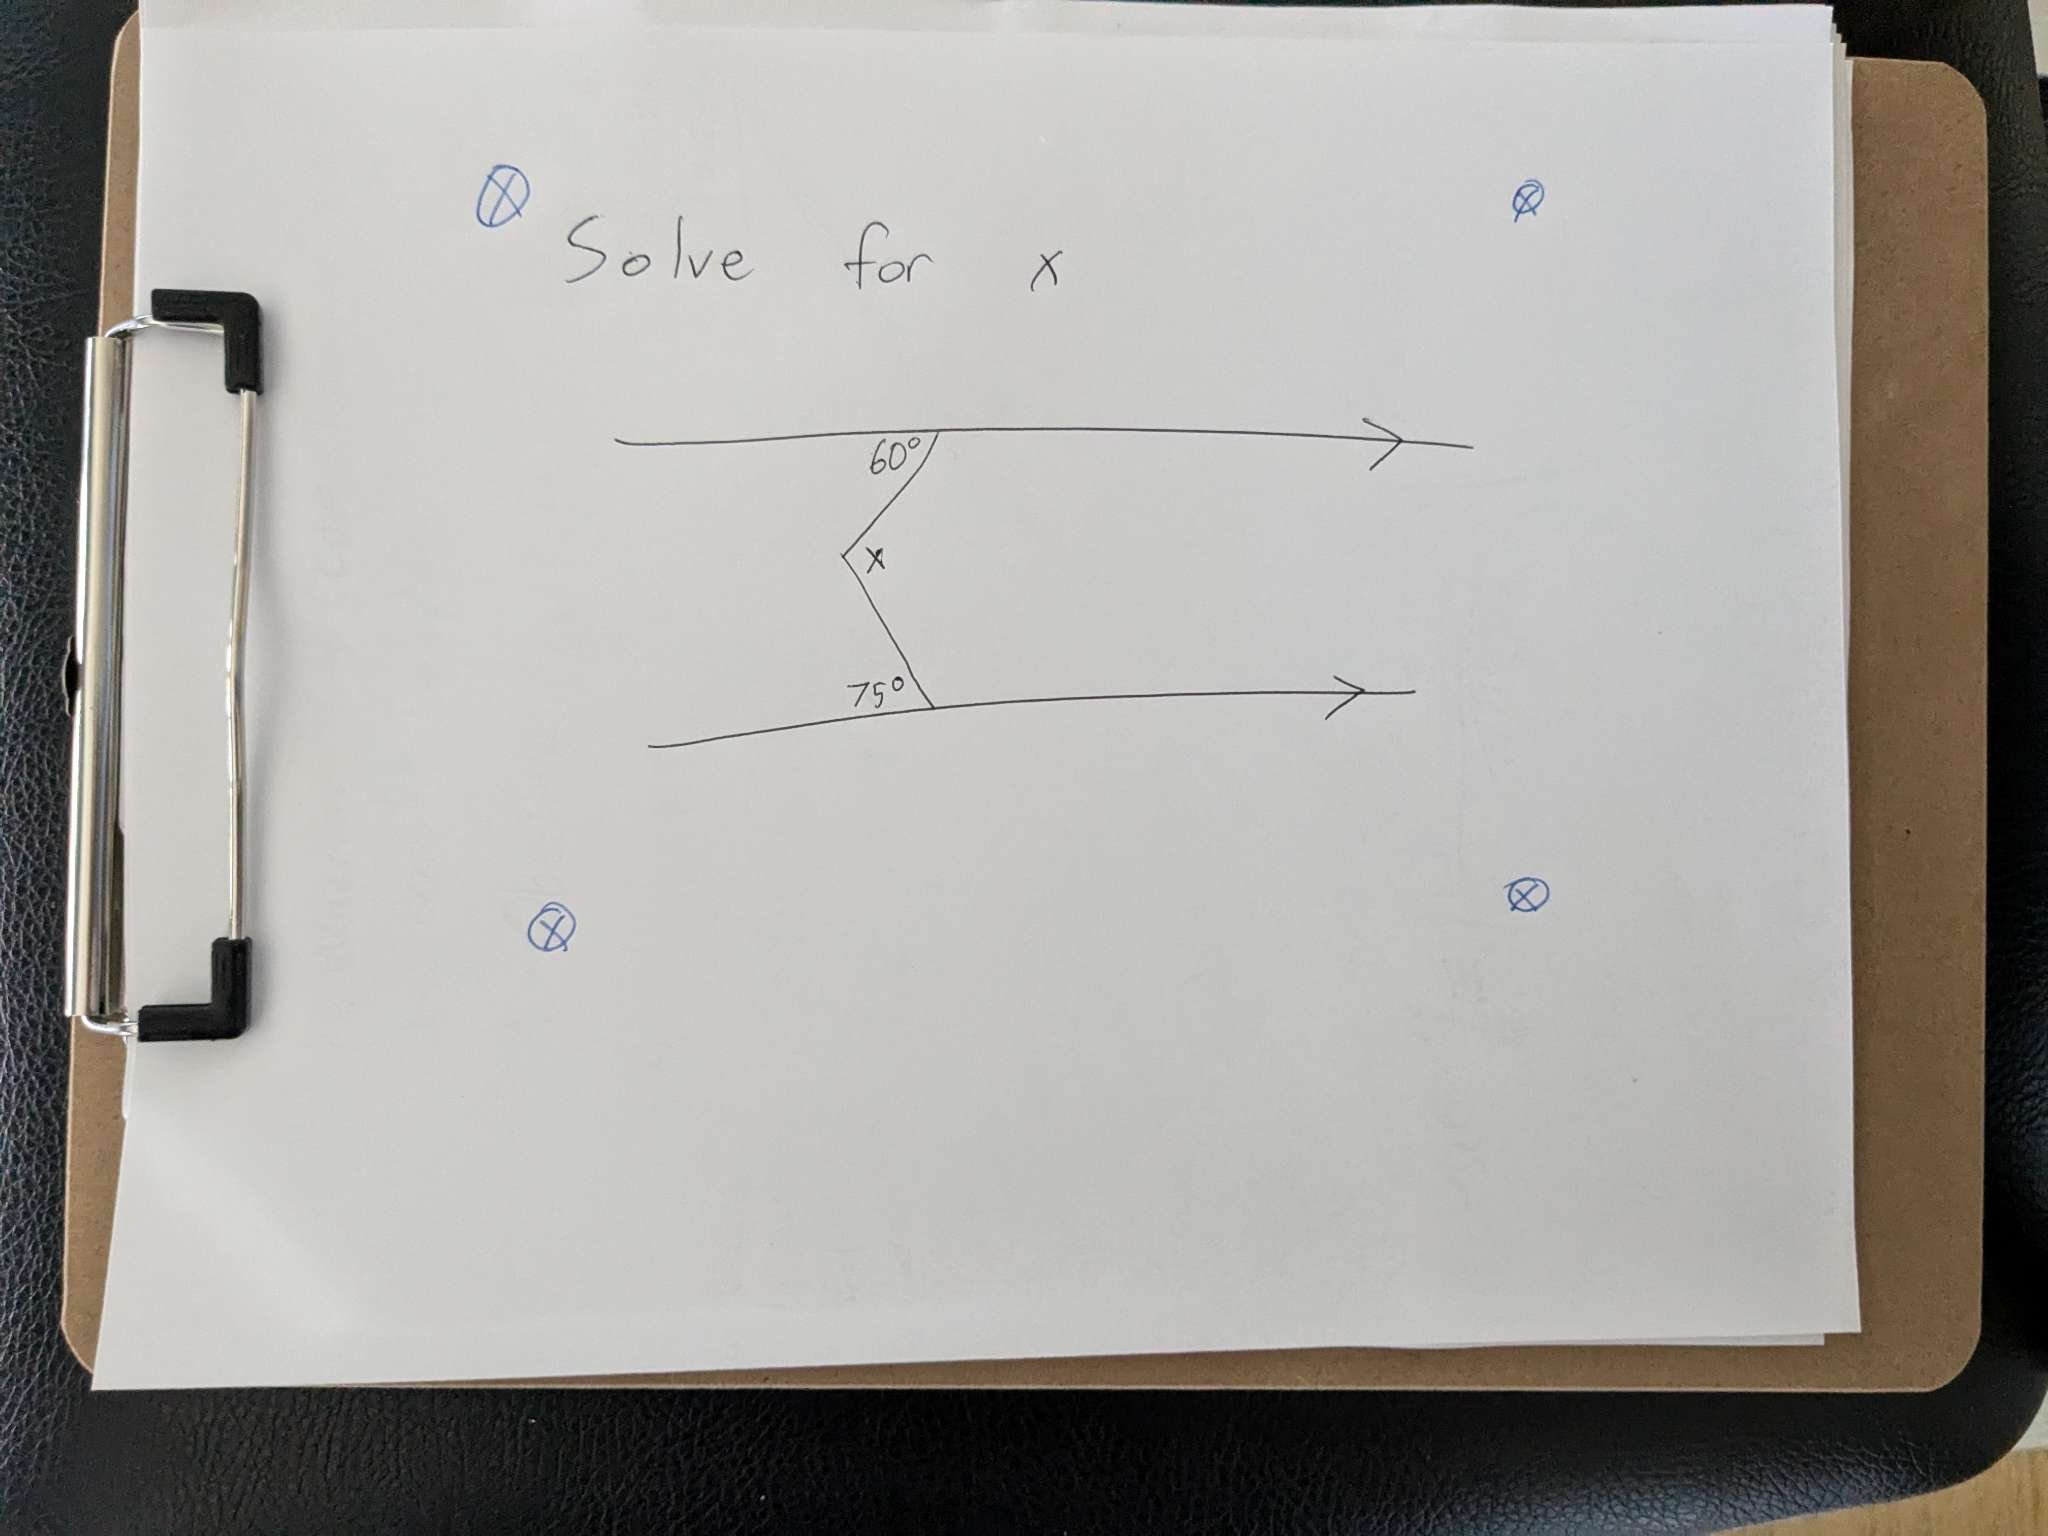 Solve for x
60°
x
75°